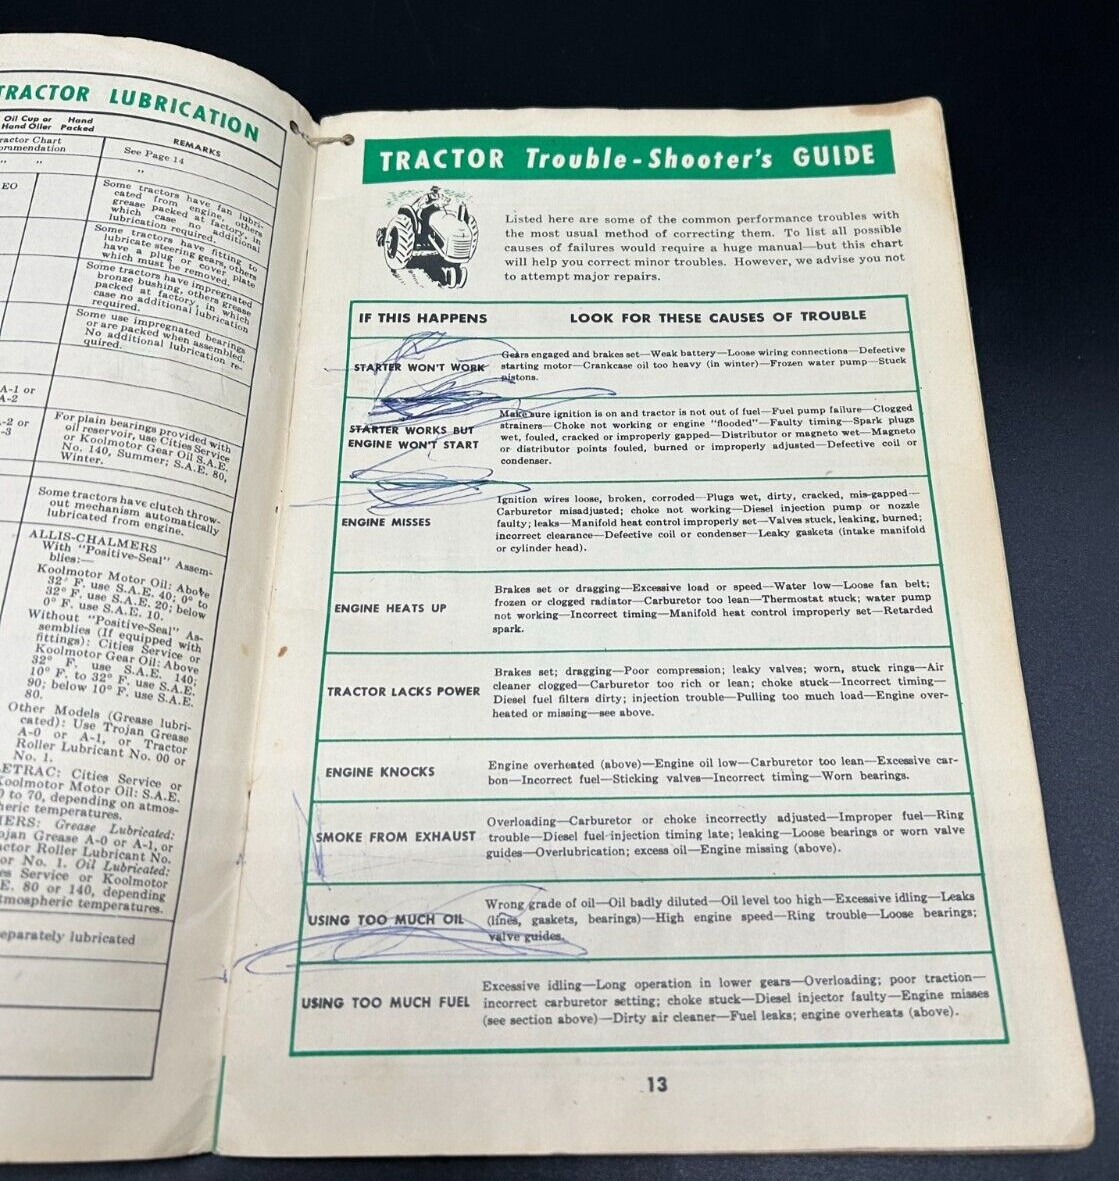 TRACTOR LUBRICATION
Oil Cup or Hand
Hand Oiler Packed
REMARKS
Tractor Chart
See Page 14
" "
"
EO
Some tractors have fan lubri-
cated from engine, others
grease packed at factory, in
which case no additional
lubrication required.
Some tractors have fitting to
lubricate steering gears, others
have a plug or cover plate
which must be removed.
Some tractors have impregnated
bronze bushing, others grease
packed at factory, in which
case no additional lubrication
required.
Some use impregnated bearings
or are packed when assembled.
No additional lubrication re-
quired.
A-1 or
A-2
A-2 or
-3
For plain bearings provided with
oil reservoir, use Cities Service
or Koolmotor Gear Oil S.A.E.
No. 140, Summer; S.A.E. 80,
Winter.
Some tractors have clutch throw-
out mechanism automatically
lubricated from engine.
ALLIS-CHALMERS
With "Positive-Seal" Assem-
blies:—
Koolmotor Motor Oil: Above
32° F. use S.A.E. 40; 0° to
32° F. use S.A.E. 20; below
0° F. use S.A.E. 10.
Without "Positive-Seal" As-
semblies (If equipped with
fittings): Cities Service or
Koolmotor Gear Oil: Above
32° F. use S.A.E. 140;
10° F. to 32° F. use S.A.E.
90; below 10° F. use S.A.E.
80.
Other Models (Grease lubri-
cated): Use Trojan Grease
A-0 or A-1, or Tractor
Roller Lubricant No. 00 or
No. 1.
ETRAC: Cities Service or
Koolmotor Motor Oil: S.A.E.
0 to 70, depending on atmos-
heric temperatures.
ERS: Grease Lubricated:
ojan Grease A-0 or A-1, or
actor Roller Lubricant No.
or No. 1. Oil Lubricated:
es Service or Koolmotor
E. 80 or 140, depending
tmospheric temperatures.
eparately lubricated
TRACTOR Trouble-Shooter's GUIDE
Listed here are some of the common performance troubles with
the most usual method of correcting them. To list all possible
causes of failures would require a huge manual—but this chart
will help you correct minor troubles. However, we advise you not
to attempt major repairs.
IF THIS HAPPENS LOOK FOR THESE CAUSES OF TROUBLE
STARTER WON'T WORK
Gears engaged and brakes set—Weak battery—Loose wiring connections—Defective
starting motor—Crankcase oil too heavy (in winter)—Frozen water pump—Stuck
pistons.
STARTER WORKS BUT
ENGINE WON'T START
Make sure ignition is on and tractor is not out of fuel—Fuel pump failure—Clogged
strainers—Choke not working or engine "flooded"—Faulty timing—Spark plugs
wet, fouled, cracked or improperly gapped—Distributor or magneto wet—Magneto
or distributor points fouled, burned or improperly adjusted—Defective coil or
condenser.
ENGINE MISSES
Ignition wires loose, broken, corroded—Plugs wet, dirty, cracked, mis-gapped—
Carburetor misadjusted; choke not working—Diesel injection pump or nozzle
faulty; leaks—Manifold heat control improperly set—Valves stuck, leaking, burned;
incorrect clearance—Defective coil or condenser—Leaky gaskets (intake manifold
or cylinder head).
ENGINE HEATS UP
Brakes set or dragging—Excessive load or speed—Water low—Loose fan belt;
frozen or clogged radiator—Carburetor too lean—Thermostat stuck; water pump
not working—Incorrect timing—Manifold heat control improperly set—Retarded
spark.
TRACTOR LACKS POWER
Brakes set; dragging—Poor compression; leaky valves; worn, stuck rings—Air
cleaner clogged—Carburetor too rich or lean; choke stuck—Incorrect timing—
Diesel fuel filters dirty; injection trouble—Pulling too much load—Engine over-
heated or missing—see above.
ENGINE KNOCKS
Engine overheated (above)—Engine oil low—Carburetor too lean—Excessive car-
bon—Incorrect fuel—Sticking valves—Incorrect timing—Worn bearings.
SMOKE FROM EXHAUST
Overloading—Carburetor or choke incorrectly adjusted—Improper fuel—Ring
trouble—Diesel fuel-injection timing late; leaking—Loose bearings or worn valve
guides—Overlubrication; excess oil—Engine missing (above).
USING TOO MUCH OIL
Wrong grade of oil—Oil badly diluted—Oil level too high—Excessive idling—Leaks
(lines, gaskets, bearings)—High engine speed—Ring trouble—Loose bearings;
valve guides.
USING TOO MUCH FUEL
Excessive idling—Long operation in lower gears—Overloading; poor traction—
incorrect carburetor setting; choke stuck—Diesel injector faulty—Engine misses
(see section above)—Dirty air cleaner—Fuel leaks; engine overheats (above).
13